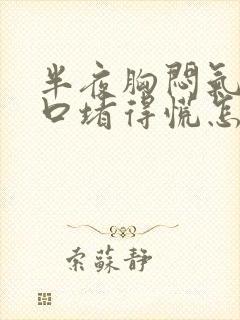 半夜胸闷氣
口堵得慌怎
索蘇靜